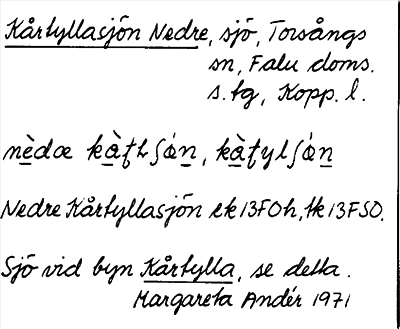 Kårtyllasjön Nedre, sjö, Torsångs
sn, Falu doms.
s. tg, Kopp. l.
Nedre Kårtyllasjön ek 13F0h, tk 13FSO.
Sjö vid byn Kårtylla, se detta.
Margareta Andér 1971